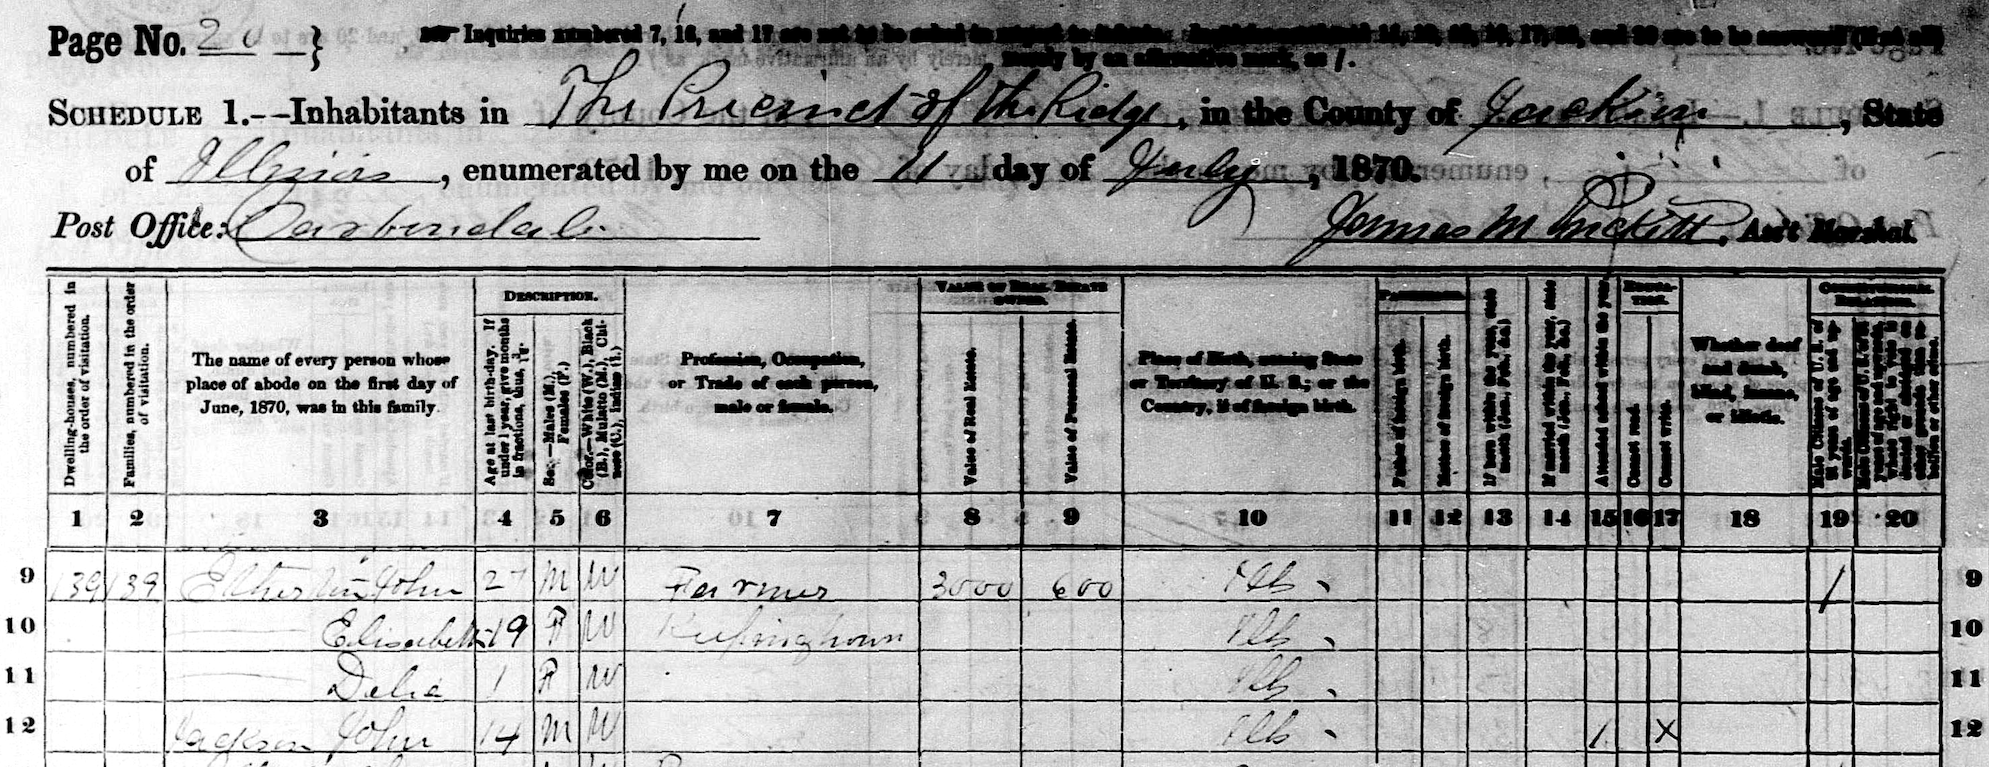 Page No. 20 }
Inquiries numbered 7, 16, and 17 are not to be asked in respect to infants. Inquiries numbered 11, 12, 15, 16, 17, 19, and 20 are to be answered (if at all)
merely by an affirmative mark, as /.
SCHEDULE 1.—Inhabitants in The Precinct of the Ridge, in the County of Jackson, State
of Illinois, enumerated by me on the 11 day of July, 1870.
Post Office: Carbondale
James M Prickett, Ass't Marshal.
DESCRIPTION. VALUE OF REAL ESTATE OWNED. PARENTAGE. EDUCATION. CONSTITUTIONAL RELATIONS.
Dwelling-houses, numbered in the order of visitation.
Families, numbered in the order of visitation.
The name of every person whose place of abode on the first day of June, 1870, was in this family.
Age at last birth-day. If under 1 year, give months in fractions, thus, 3/12.
Sex.—Males (M.), Females (F.)
Color.—White (W.), Black (B.), Mulatto (M.), Chinese (C.), Indian (I.)
Profession, Occupation, or Trade of each person, male or female.
Value of Real Estate.
Value of Personal Estate.
Place of Birth, naming State or Territory of U. S.; or the Country, if of foreign birth.
Father of foreign birth.
Mother of foreign birth.
If born within the year, state month (Jan., Feb., &c.)
If married within the year, state month (Jan., Feb., &c.)
Attended school within the year.
Cannot read.
Cannot write.
Whether deaf and dumb, blind, insane, or idiotic.
Male Citizens of U. S. of 21 years of age and upwards.
1 2 3 4 5 6 7 8 9 10 11 12 13 14 15 16 17 18 19 20
9 139 139 Etherton John 27 M W Farmer 3000 600 Ills / 9
10 Elisabeth 19 F W Keeping house Ills 10
11 Delia 1 F W Ills 11
12 Jackson John 14 M W Ills / X 12